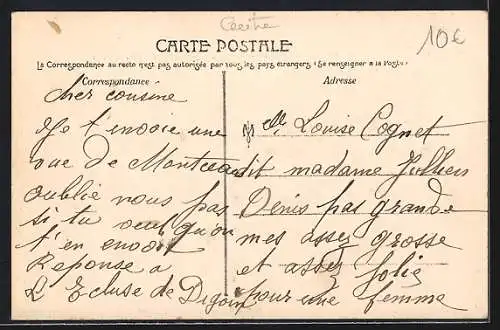 10€
CARTE POSTALE
La Correspondance au recto n'est pas autorisée par tous les pays étrangers (Se renseigner à la Poste)
Correspondance
Adresse
cher cousine
Je t'envoie une
vue de Montceau
oublie nous pas
si tu veut qu'on
t'en envoit
Reponse a
L Ecluse de Digoin
Melle Louise Cognet
dit madame
Denis pas grande
mes assez grosse
et assez Jolie
pour une femme